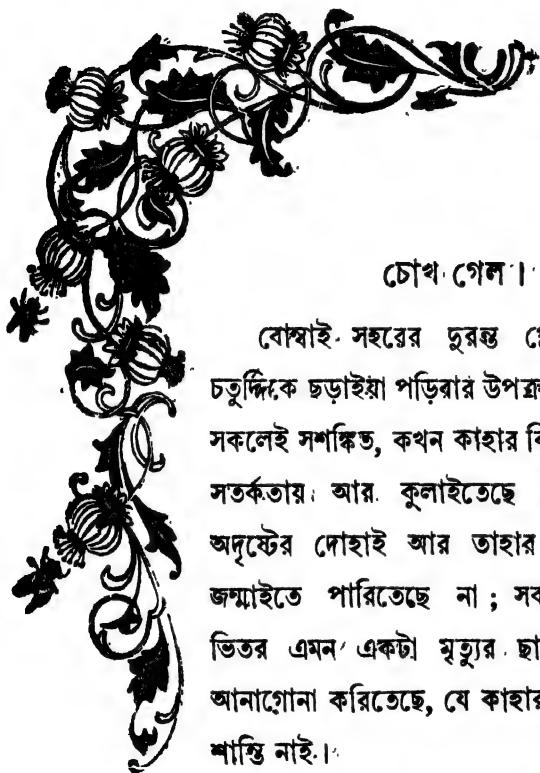 চোখ গেল।
বোম্বাই সহরের দুরন্ত
চতুর্দ্দিকে ছড়াইয়া পড়িবার
সকলেই সশঙ্কিত, কখন কাহার
সতর্কতায় আর কুলাইতেছে
অদৃষ্টের দোহাই আর তাহার
জন্মাইতে পারিতেছে না;
ভিতর এমন একটা মৃত্যুর
আনাগোনা করিতেছে, যে কাহার
শান্তি নাই।